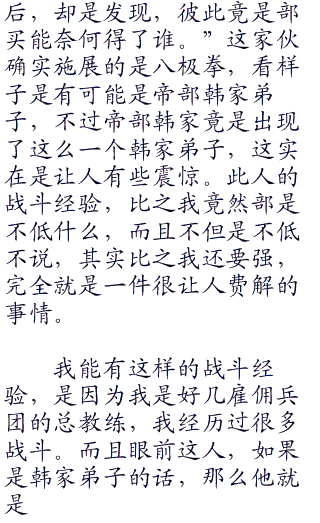 后，却是发现，彼此竟是部
买能奈何得了谁。”这家伙
确实施展的是八极拳，看样
子是有可能是帝部韩家弟
子，不过帝部韩家竟是出现
了这么一个韩家弟子，这实
在是让人有些震惊。此人的
战斗经验，比之我竟然部是
不低什么，而且不但是不低
不说，其实比之我还要强，
完全就是一件很让人费解的
事情。
我能有这样的战斗经
验，是因为我是好几雇佣兵
团的总教练，我经历过很多
战斗。而且眼前这人，如果
是韩家弟子的话，那么他就
是